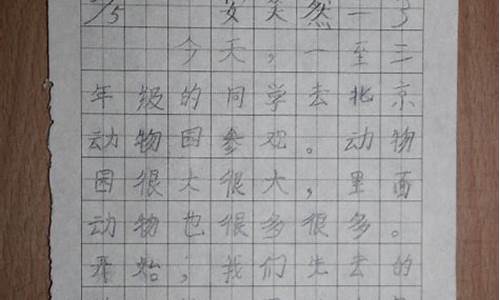 /5 安笑然一3
今天,一至三
年级的同学去北京
动物园参观。动物
园很大很大,里面
动物也很多很多。
开始,我们先去的